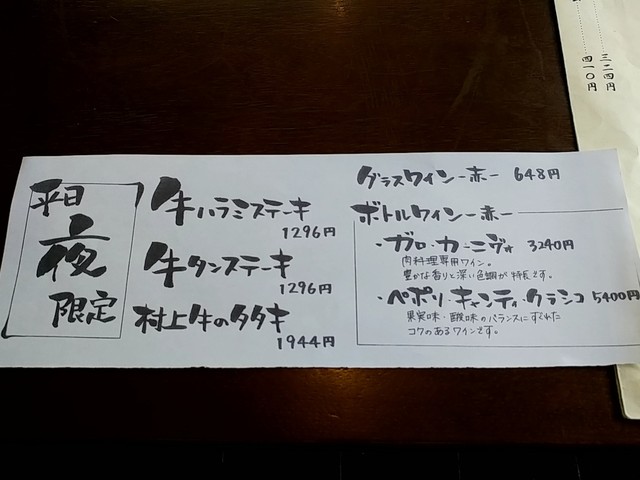 平日
夜
限定
牛ハラミステーキ
1296円
牛タンステーキ
1296円
村上牛のタタキ
1944円
グラスワイン-赤- 648円
ボトルワイン-赤-
・ガロ・カーニヴォ 3240円
肉料理専用ワイン。
豊かな香りと深い色調が特長です。
・ペポリ・キャンティ・クラシコ 5400円
果実味・酸味のバランスにすぐれた
コクのあるワインです。
三二四円
四一〇円